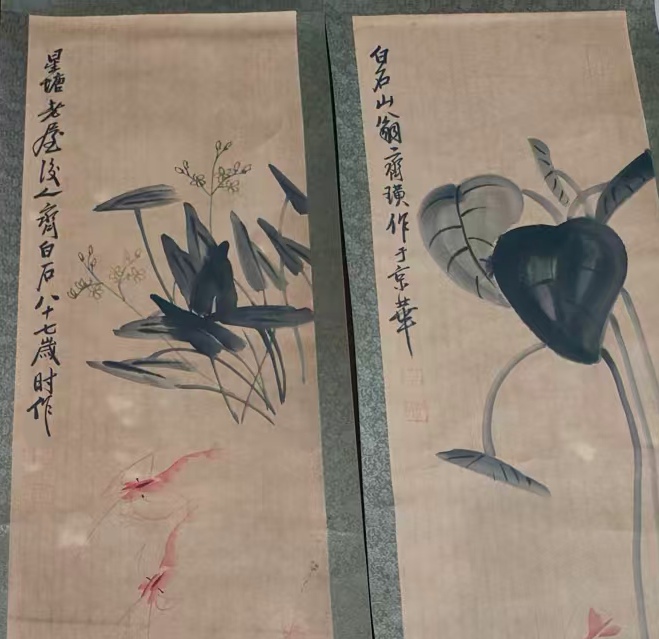 白石山翁齊璜作于京華
星塘老屋後人齊白石八十七歲时作